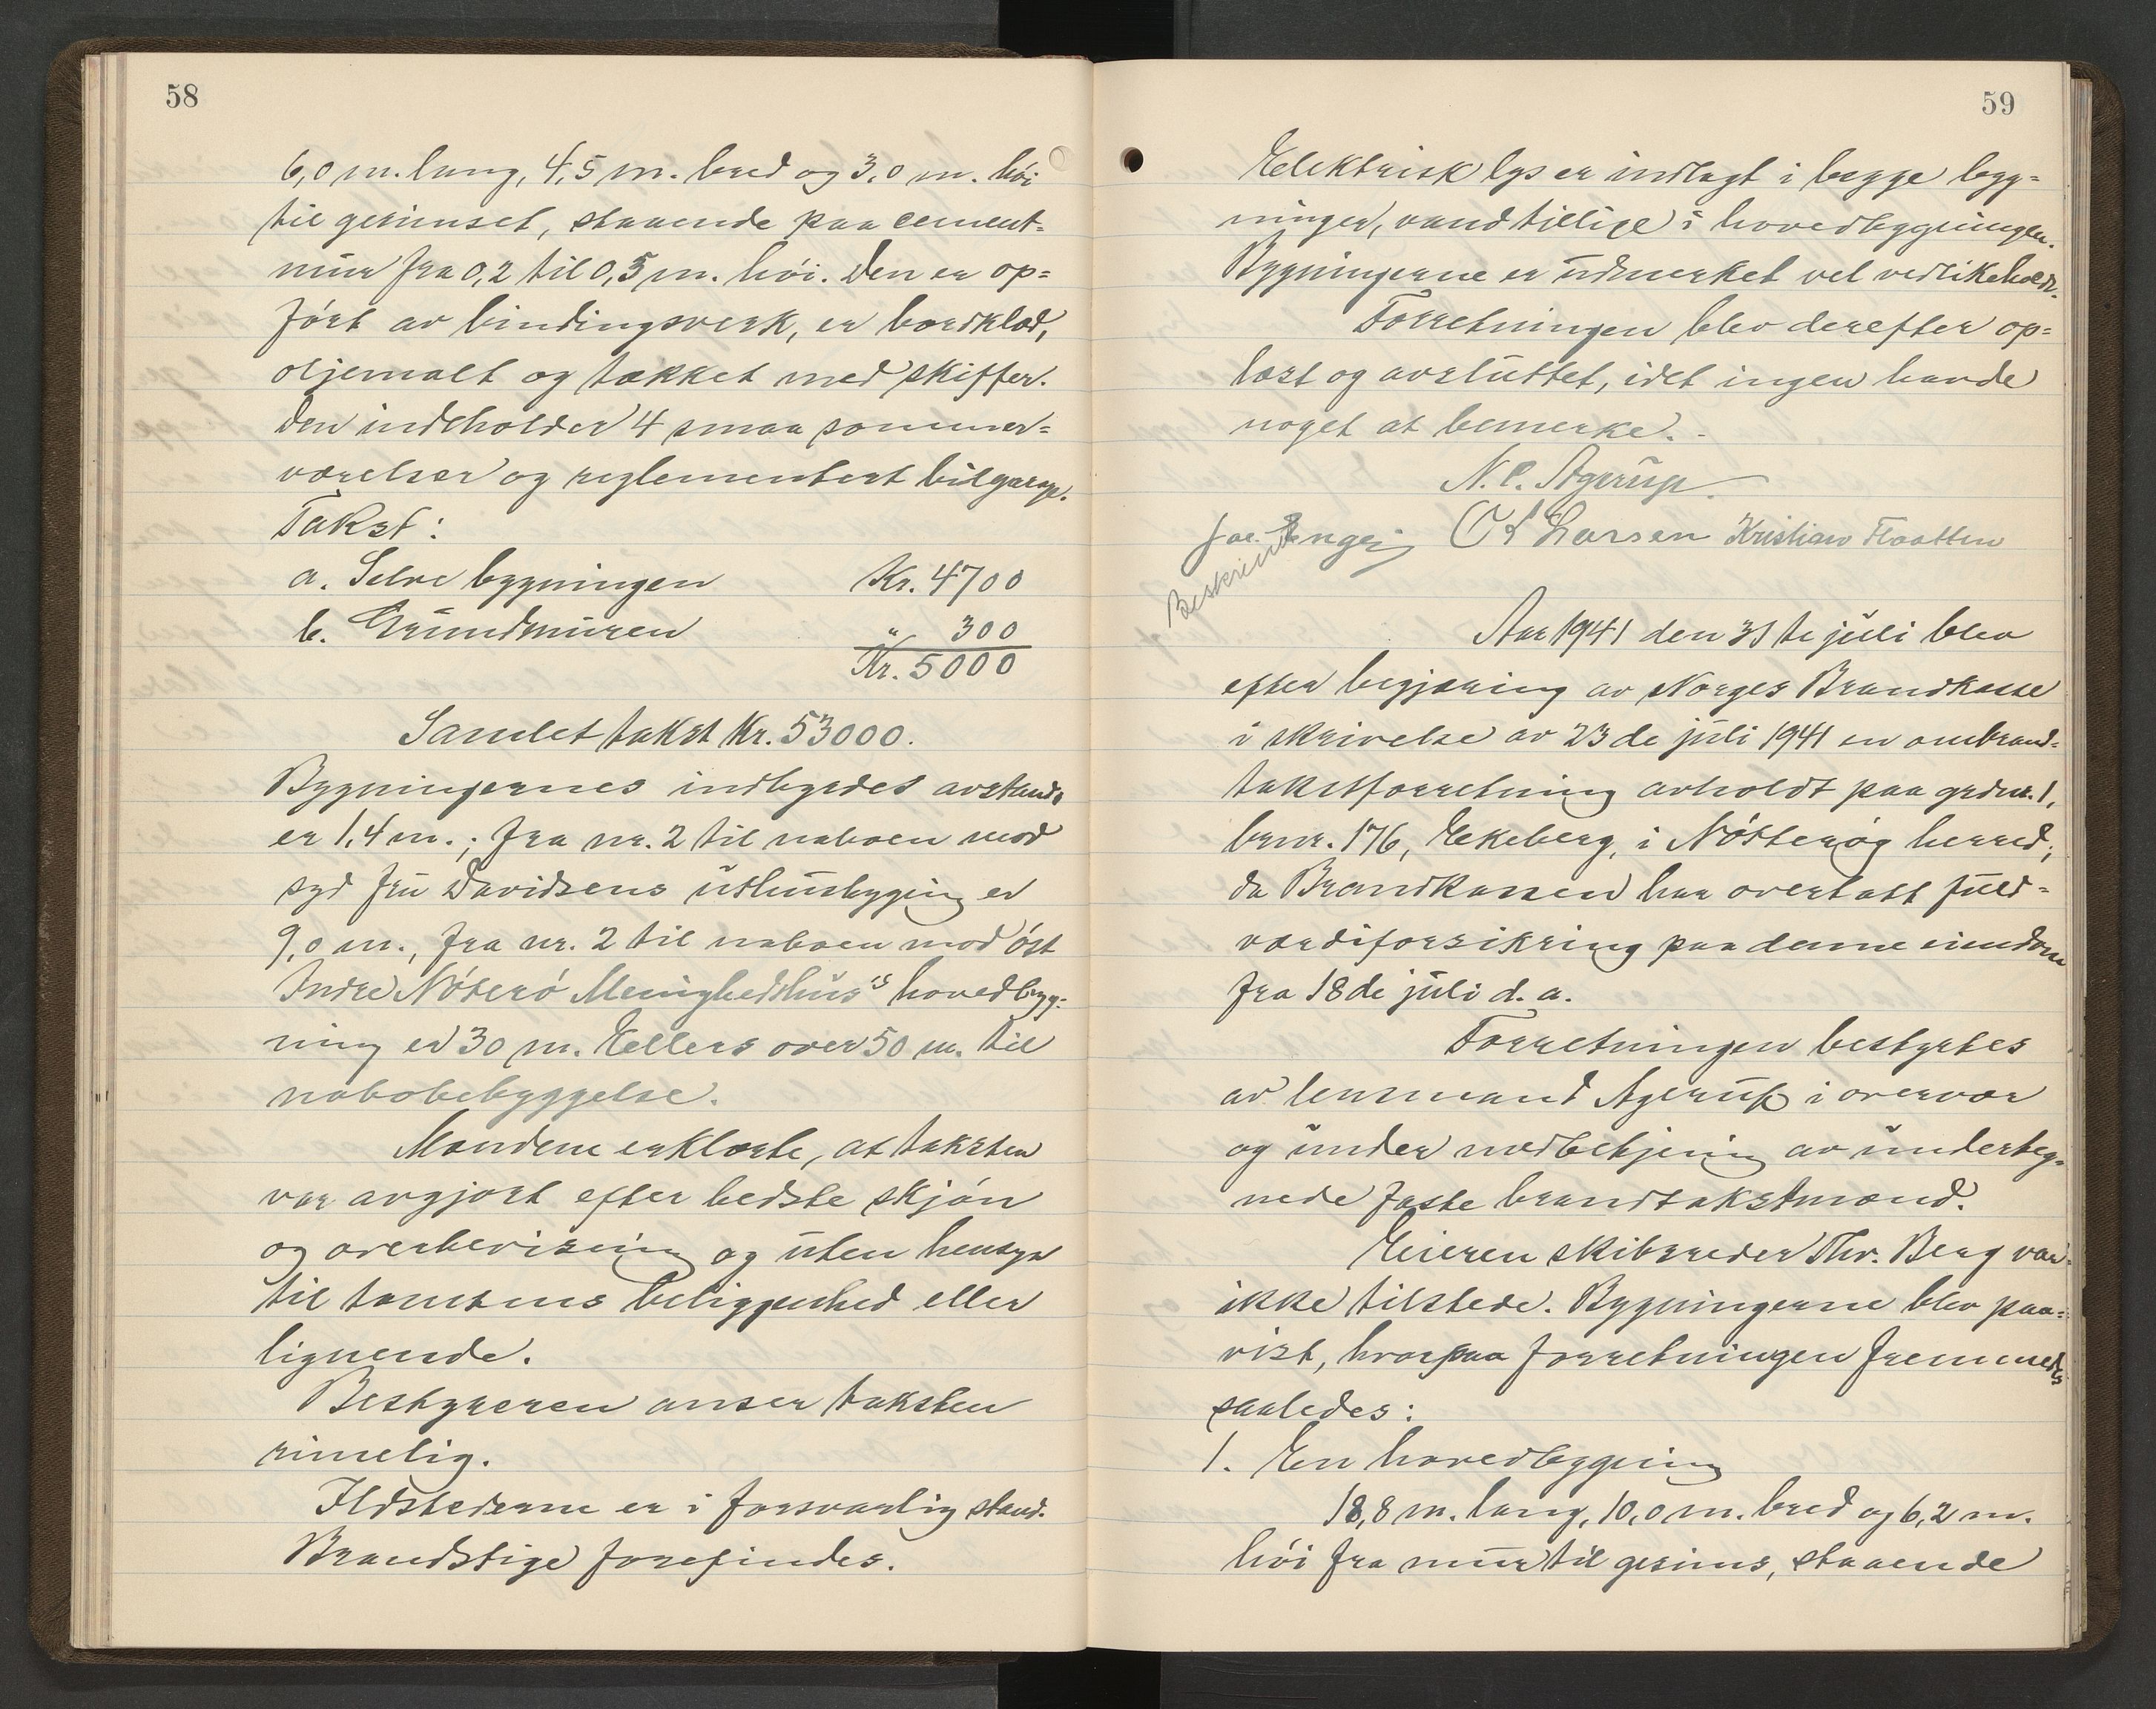 58
6,0 m. lang, 4,5 m. bred og 3,0 m. høi
til gesimset, staaende paa cement-
mur fra 0,2 til 0,5 m. høi. Den er op-
ført av bindingsverk, er bordklæd,
oljemalt og tækket med skiffer.
Den indeholder 4 smaa sommer-
værelser og reglementert bilgarage.
Takst:
a. Selve bygningen Kr. 4700
b. Grundmuren " 300
Kr. 5000
Samlet takst Kr. 53000.
Bygningernes indbyrdes avstand
er 1,4 m.; fra nr. 2 til naboen mod
syd fru Davidsens uthusbygging er
9,0 m., fra nr. 2 til naboen mod øst
Indre Nøterø Menighedshus's hovedbyg-
ning er 30 m. Ellers over 50 m. til
nabobebyggelse.
Mændene erklærte, at taksten
var avgjort efter bedste skjøn
og overbevisning og uten hensyn
til tomtens beliggenhed eller
lignende.
Bestyreren anser taksten
rimelig.
Ildstederne er i forsvarlig stand.
Brandstige forefindes.
59
Elektrisk lys er indlagt i begge byg-
ninger, vand tillige i hovedbygningen.
Bygningerne er udmerket vel vedlikeholdt.
Forretningen blev derefter op-
læst og avsluttet, idet ingen havde
noget at bemerke.-
N. C. Agerup.
Jac. Enger Ol Larsen Kristian Flaatten
Beskrevet
Aar 1941 den 31te juli blev
efter begjæring av Norges Brandkasse
i skrivelse av 23de juli 1941 en ombrand-
takstforretning avholdt paa grdnr. 1,
brnr. 176, Ekeberg, i Nøtterøy herred,
da Brandkassen har overtatt fuld-
værdiforsikring paa denne eiendom
fra 18de juli d. a.
Forretningen bestyrtes
av lensmand Agerup i overvær
og under medbetjening av underteg-
nede faste brandtakstmænd.
Eieren skibsreder Thv. Berg var
ikke tilstede. Bygningerne blev paa-
vist, hvorpaa forretningen fremmedes
saaledes:
1. En hovedbygning
18,8 m. lang, 10,0 m. bred og 6,2 m.
høi fra mur til gesims, staaende